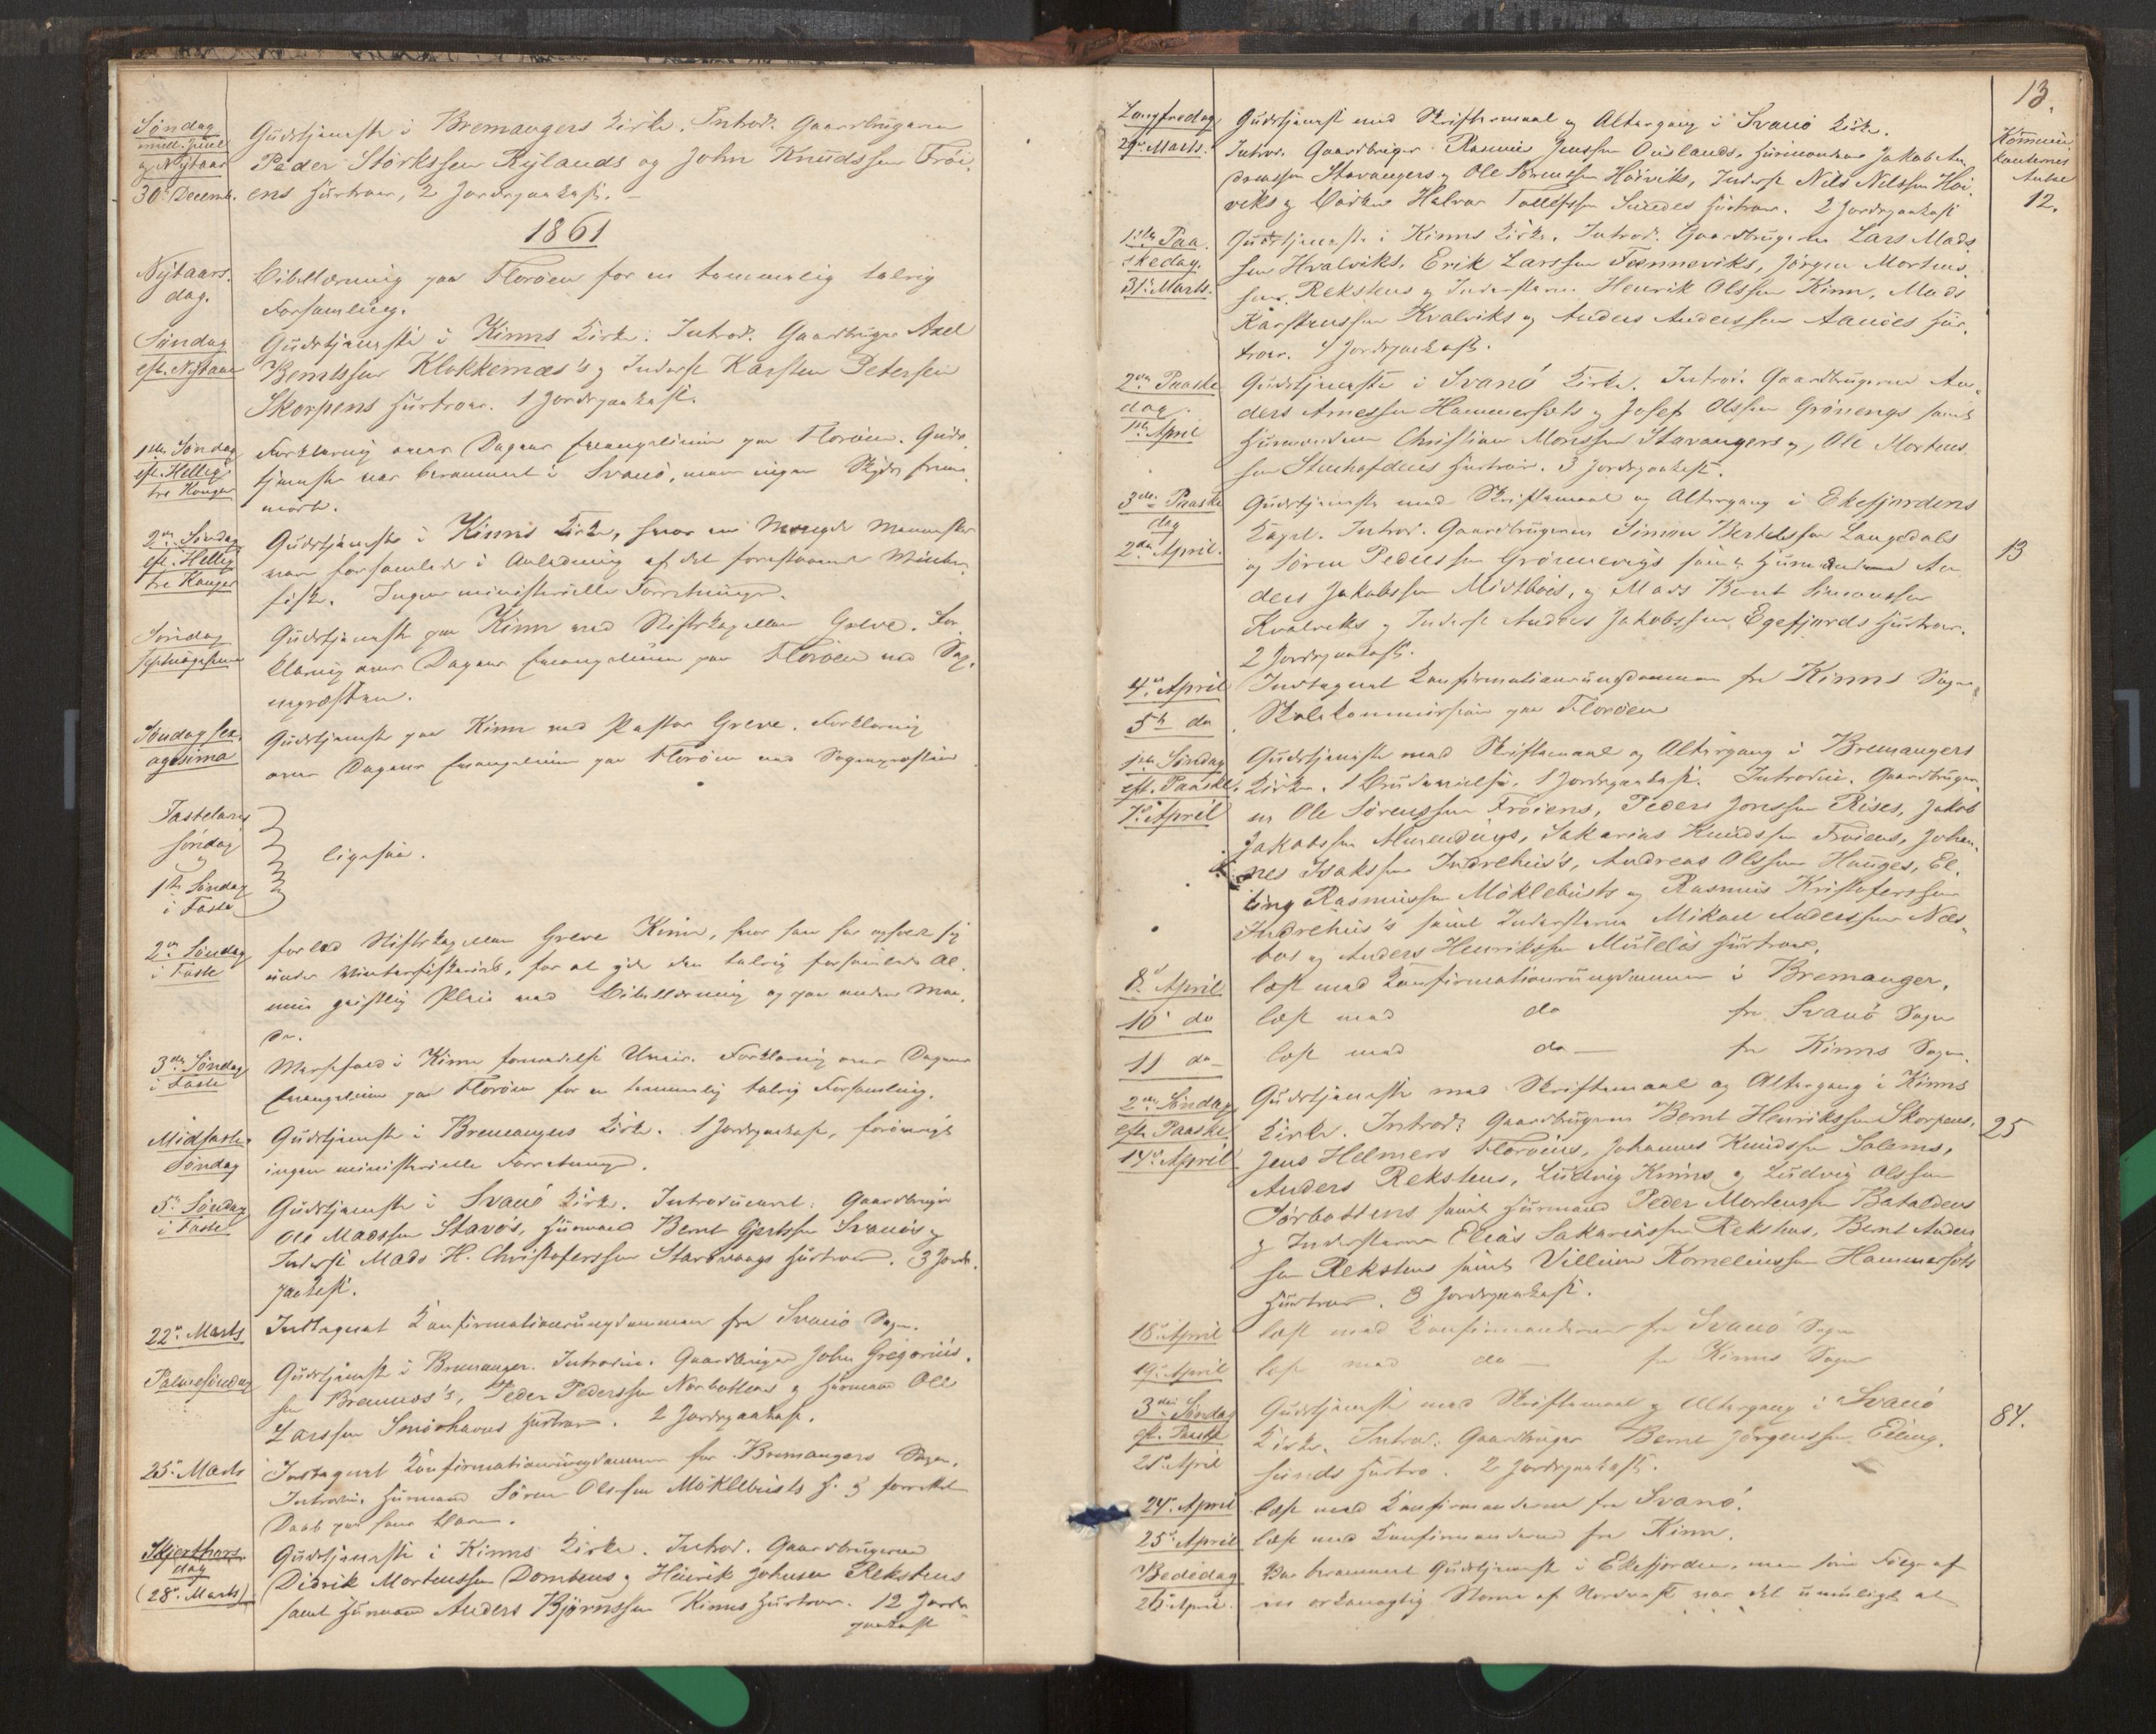 Søndag
mell. Juul
og Nytaar
30te Decemb.
Gudstjeneste i Bremangers Kirke. Introd. Gaardbrugerne
Peder Størkssen Rylands og John Knudssen Frøi-
ens Hustroer, 2 Jordpaakast. –
1861
Nytaars-
dag.
Bibellæsning paa Florøen for en temmelig talrig
Forsamling.
Søndag
eft. Nytaar
Gudstjeneste i Kinns Kirke. Introd. Gaardbruger Axel
Berntssen Klokkernæs's og Inderst Karsten Petersen
Skorpens Hustroer. 1 Jordpaakast.
1ste Søndag
eft. Hellig
tre Konger
Forklaring over Dagens Evangelium paa Florøen. Guds-
tjeneste var berammet i Svanø, men ingen Skyds frem-
mødte.
2den Søndag
eft. Hellig
tre Konger
Gudstjeneste i Kinns Kirke, hvor en Mængde Mennesker
var forsamlede i Anledning af det forestaaende Vinter-
fiske. Ingen ministerielle Forretninger.
Søndag
Septuagesima
Gudstjeneste paa Kinn ved Stiftskapellan Greve. For-
klaring over Dagens Evangelium paa Florøen ved Sog-
nepræsten.
Søndag Sex-
agesima
Gudstjeneste paa Kinn ved Pastor Greve. Forklaring
over Dagens Evangelium paa Florøen ved Sognepræsten
Fastelavns
søndag
og
1ste Søndag
i Faste
ligesaa.
2den Søndag
i Faste
forlod Stiftskapellan Greve Kinn, hvor han har opholdt sig
under Vinterfiskeriet, for at yde den talrig forsamlede Al-
mue geistlig Pleie ved Bibellæsning og paa anden Maa-
de.
3die Søndag
i Faste
Messefald i Kinn formedelst Uveir. Forklaring over Dagens
Evangelium paa Florøen for en temmelig talrig Forsamling.
Midfaste
Søndag
Gudstjeneste i Bremangers Kirke. 1 Jordpaakast, forøvrigt
ingen ministerielle Forretninger.
5te Søndag
i Faste
Gudstjeneste i Svanø Kirke. Introduceret: Gaardbruger
Ole Madssen Stavøs, Husmand Bernt Gjertssen Svanøs og
Inderst Mads H. Christoferssen Hustroer. 3 Jord-
paakast.
22de Marts
Indtegnet Konfirmationsungdommen fra Svanø Sogn.
Palmesøndag
Gudstjeneste i Bremanger. Introdu. Gaardbruger John Gregorius-
sen Bremnes's, Peder Pederssen Nordbottens og Husmand Ole
Larssen Smørhavns Hustroer. 2 Jordpaakast.
25de Marts
Indtegnet Konfirmationsungdommen for Bremangers Sogn.
Introdu. Husmand Søren Olssen Møklebusts H. og forrettet
Daab paa hans Barn.
Skjerthors-
dag
(28de Marts)
Gudstjeneste i Kinns Kirke. Introd. Gaardbrugerne
Didrik Mortenssen Dombens og Henrik Johnsen Rekstens
samt Husmand Anders Bjørnssen Kinns Hustroer. 12 Jord-
paakast
13.
Kommuni-
kanternes
Antal
Langfredag
29de Marts.
Gudstjenest med Skriftemaal og Altergang i Svanø Kirke.
Introd. Gaardbruger Rasmus Jenssen Ouslands, Husmændene Jakob An-
dreassen Stavangers og Ole Sørenssen Høiviks, Inderst Nils Nilssen Høi-
viks og Halvor Tollefssen Hustroer. 2 Jordpaakast
12.
1ste Paa-
skedag.
31te Marts.
Gudstjeneste i Kinns Kirke. Introd. Gaardbrugerne Lars Mads-
sen Hvalviks, Erik Larssen Fænneviks, Jørgen Mortens-
sen Rekstens og Inderstene Henrik Olssen Kinn, Mads
Karstenssen Kvalviks og Anders Anderssen Aanøes Hus-
troer. 4 Jordpaakast.
2den Paaske
dag.
1ste April
Gudstjeneste i Svanø Kirke. Introd. Gaardbrugerne An-
ders Arnessen Hammersets og Josef Olssen Grønengs samt
Husmændene Christian Monssen Stavangers og Ole Mortens-
sen Stenhofdens Hustroer. 3 Jordpaakast.
3die Paaske
dag
2den April.
Gudstjeneste med Skriftemaal og Altergang i Ekefjordens
Kapel. Introd. Gaardbrugerne Simon Bertelssen Langedals
og Søren Pederssen Grønnevigs samt Husmændene An-
ders Jakobssen Midtbøis, og Mads Bernt Simonssen
Kvalviks og Inderst Anders Jakobssen Egefjords Hustroer.
2 Jordpaakast.
13
4de April
5te do
Indtegnet Konfirmationsungdommen fra Kinns Sogn.
Skolekommission paa Florøen
1ste Søndag
eft. Paaske.
7de April
Gudstjeneste med Skriftemaal og Altergang i Bremangers
Kirke. 1 Brudevielse, 1 Jordpaakast. Introdu. Gaardbruger-
ne Ole Sørenssen Frøiens, Peder Jonssen Rises, Jakob
Jakobssen Almendings, Sakarias Knudssen Frøiens, Johan-
nes Isakssen Indrehus's, Andreas Olssen Hauges, El-
ling Rasmussen Møklebusts og Rasmus Kristoferssen
Indrehus's samt Inderstene Mikael Anderssen Næs-
bøs og Anders Henrikssen Hustroer.
8de April
læst med Konfirmationsungdommen i Bremanger.
10de do
læst med do fra Svanø Sogn
11 do
læst med do fra Kinns Sogn.
2den Søndag
eft. Paaske.
14de April
Gudstjeneste med Skriftemaal og Altergang i Kinns
Kirke. Introd. Gaardbrugerne Bernt Henrikssen Skorpens,
Jens Helmers Florøens, Johannes Knudssen Solems,
Anders Rekstens, Ludvig Kinns og Ludvig Olssen
Sørbottens samt Husmand Peder Mortenssen Bataldens
og Inderstene Elias Sakariassen Rekstens, Bernt Anders-
sen Rekstens samt Villum Korneliussen Hammersets
Hustroer. 3 Jordpaakast.
25
18de April
læst med Konfirmanderne fra Svanø Sogn
19de April
læst med do fra Kinns Sogn
3die Søndag
eft. Paaske
21de April
Gudstjeneste med Skriftemaal og Altergang i Svanø
Kirke. Introd. Gaardbruger Bernt Jørgenssen Eding-
sunds Hustro. 2 Jordpaakast.
84.
24de April
læst med Konfirmanderne fra Svanø.
25de April
læst med Konfirmanderne fra Kinn.
Bededag
26de April.
Var berammet Gudstjenest i Ekefjorden, men som Følge af
en orkanagtig Storm af Nordvest var det umuligt at